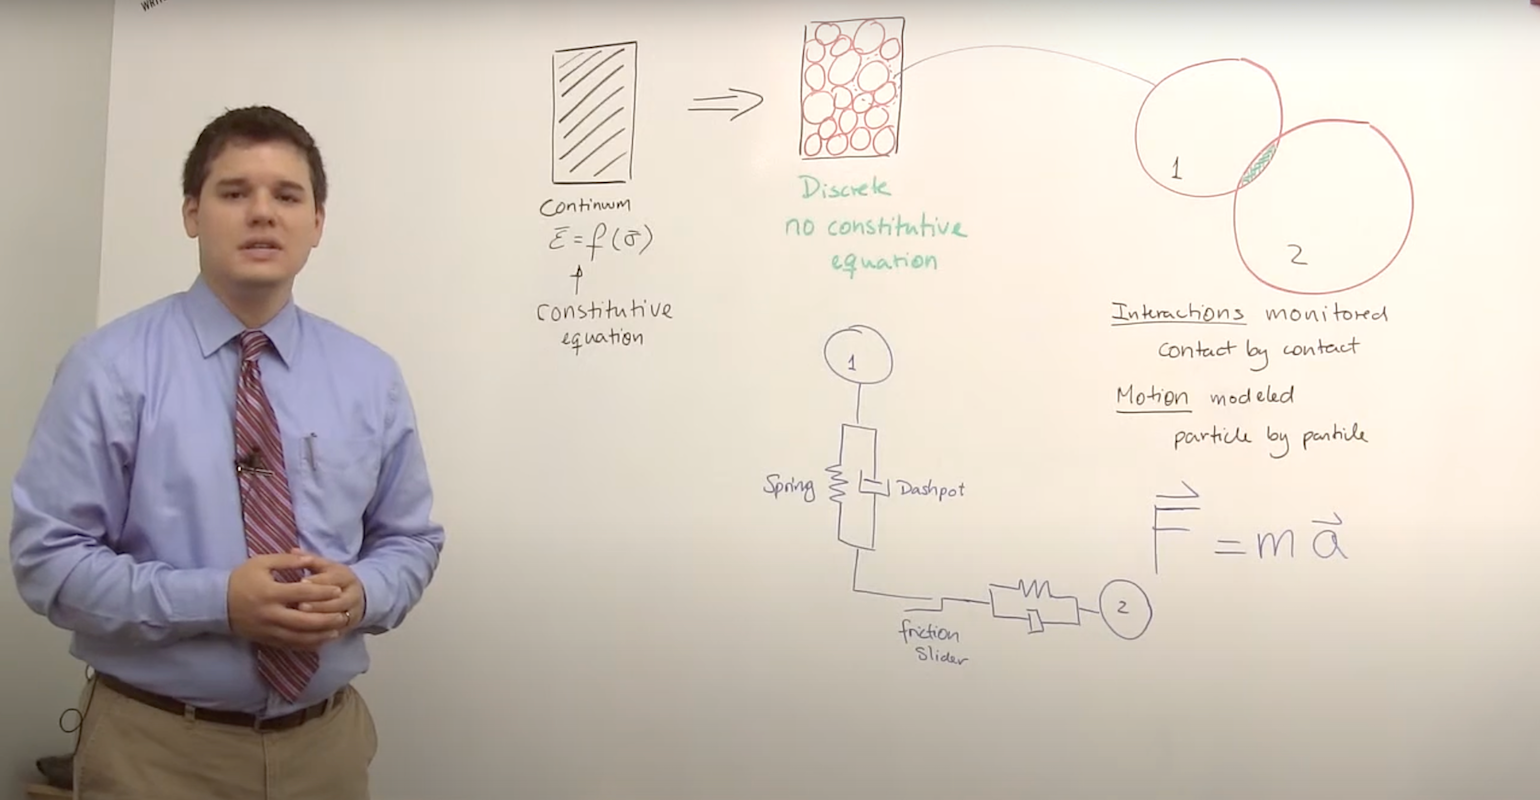 Continuum
ε̄ = f(σ̄)
constitutive
equation
Discrete
no constitutive
equation
1
2
Interactions monitored
contact by contact
Motion modeled
particle by particle
F⃗ = m a⃗
1
Spring
Dashpot
friction
slider
2